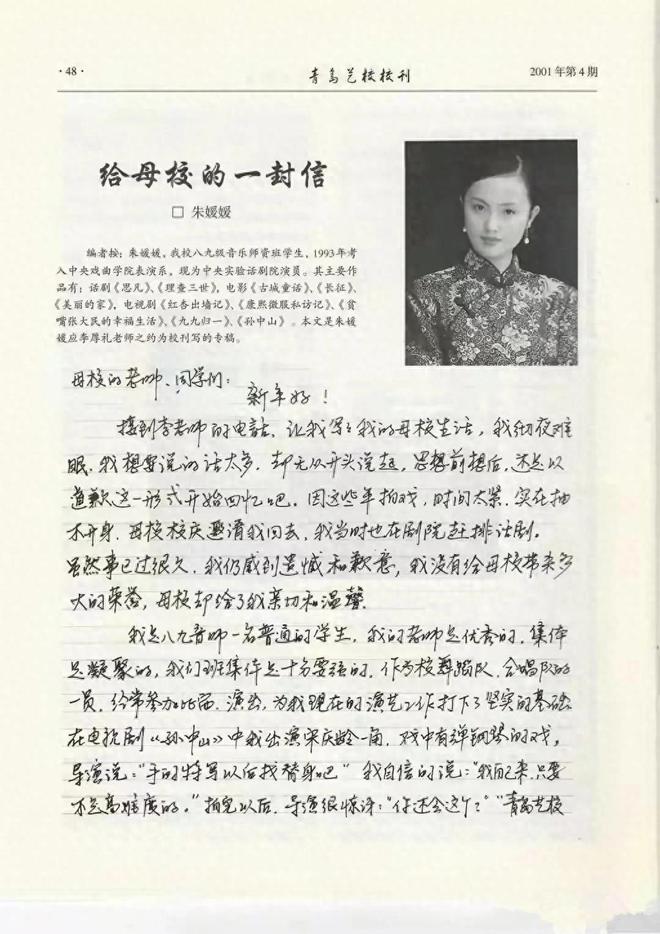 ·48·
青岛艺校校刊
2001年第4期
给母校的一封信
□ 朱媛媛
编者按：朱媛媛，我校八九级音乐师资班学生，1993年考
入中央戏曲学院表演系，现为中央实验话剧院演员。其主要作
品有：话剧《思凡》、《理查三世》，电影《古城童话》、《长征》、
《美丽的家》，电视剧《红杏出墙记》、《康熙微服私访记》、《贫
嘴张大民的幸福生活》、《九九归一》、《孙中山》。本文是朱媛
媛应李厚礼老师之约为校刊写的专稿。
母校的老师、同学们：
新年好！
接到李老师的电话，让我写写我的母校生活，我彻夜难
眠，我想要说的话太多，却无从开头说起，思想前想后，还是以
道歉这一形式开始回忆吧。因这些年拍戏，时间太紧，实在抽
不开身，母校校庆邀请我回去，我当时也在剧院赶排话剧。
虽然事已过很久，我仍感到遗憾和歉意，我没有给母校带来多
大的荣誉，母校却给了我亲切和温馨。
我是八九音师一名普通的学生，我的老师是优秀的，集体
是凝聚的，我们班集体是十分要强的，作为校舞蹈队、合唱队的
一员，经常参加比赛、演出，为我现在的演艺工作打下了坚实的基础
在电视剧《孙中山》中我出演宋庆龄一角，戏中有弹钢琴的戏，
导演说：“手的特写以后找替身吧”我自信的说：“我自己来，只要
不是高难度的。”拍完以后，导演很惊讶：“你还会这个？”“青岛艺校